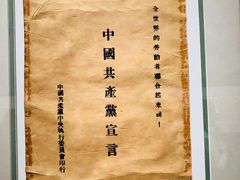 全世界的勞動者聯合起來呵！
中國共產黨宣言
中國共產黨中央執行委員會印行